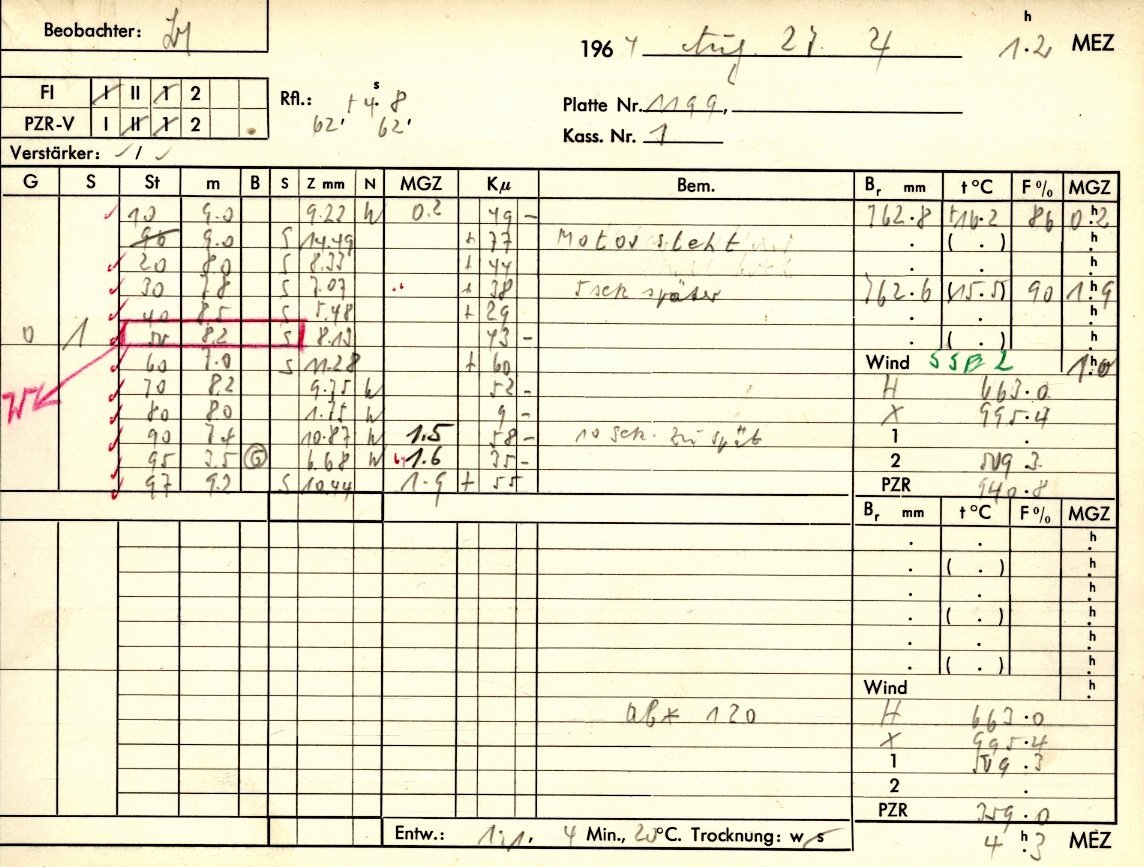 Beobachter:
196 4 Aug. 27. 4 1 h . 2 MEZ
FI I II 1 2
PZR-V I II 1 2
Rfl.: + 4 s . 8
62' 62'
Platte Nr. 1199,
Kass. Nr. 1
Verstärker: /
G S St m B S Z mm N MGZ Kμ Bem. Br mm t °C F % MGZ
10 9.0 9.22 W 0.2 49 - 762.8 +16.2 86 0 h . 2
96 9.0 S 14.49 + 77 Motor steht ( . ) h .
20 8.0 S 8.33 + 44 . . h .
30 7.8 S 7.07 + 38 5 sek später 762.6 (15.5) 90 1 h . 9
40 8.5 S 5.48 + 29 . . h .
0 1 50 8.2 S 8.13 43 - . ( . ) h .
60 7.0 S 11.28 + 60 Wind SSE 2 1 h . 0
W 70 8.2 9.75 W 52 - H 663.0
80 8.0 1.75 W 9 - X 995.4
90 7.4 10.87 W 1.5 58 - 10 sek. zu spät 1 .
95 3.5 G 6.68 W 1.6 35 - 2 509.3
97 9.2 S 10.44 1.9 + 55 PZR 940.8
Br mm t °C F % MGZ
. . h .
. ( . ) h .
. . h .
. ( . ) h .
. . h .
. ( . ) h .
Wind h .
ab * 120 H 663.0
X 995.4
1 509.3
2 .
PZR 359.0
Entw.: 1:1, 4 Min., 20°C. Trocknung: w/s 4 h . 3 MEZ